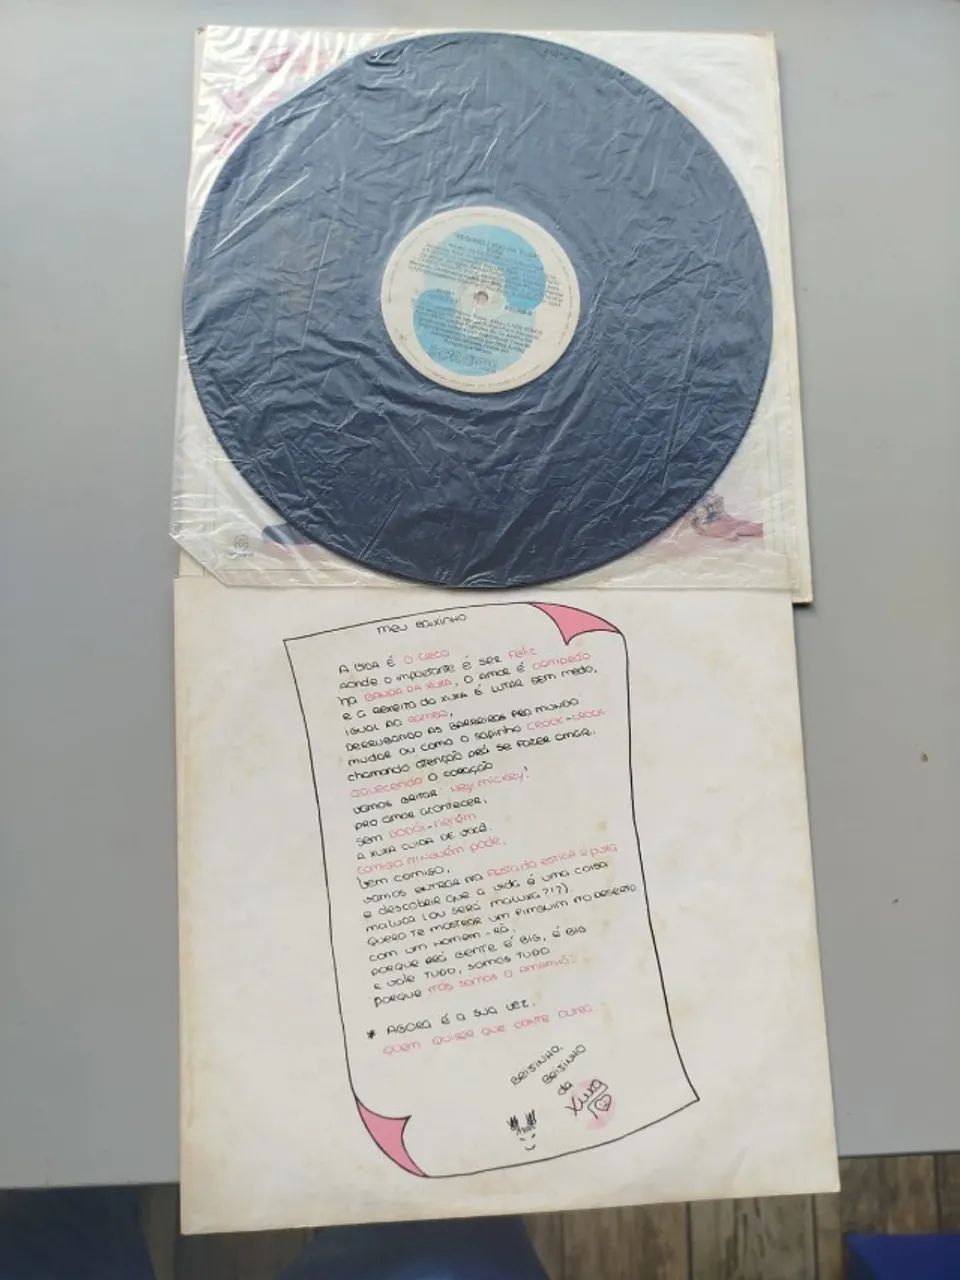 meu Baixinho
A VIDA É O CIRCO
AONDE O IMPORTANTE É SER FELIZ
NA BANDA DA XUXA, O AMOR É CAMPEÃO
E A RECEITA DA XUXA É LUTAR SEM MEDO,
IGUAL AO RAMBO,
DERRUBANDO AS BARREIRAS PRO MUNDO
MUDAR OU COMO O SAPINHO CROCK-CROCK
CHAMANDO ATENÇÃO PRÁ SE FAZER AMAR.
AQUECENDO O CORAÇÃO
VAMOS GRITAR: HEY MICKEY!
PRO AMOR ACONTECER,
SEM DODÓI-NENÉM
A XUXA CUIDA DE VOCÊ.
COMIGO NINGUÉM PODE,
VEM COMIGO,
VAMOS ENTRAR NA FESTA DO ESTICA E PUXA
E DESCOBRIR QUE A VIDA É UMA COISA
MALUCA (OU SERÁ MALUXA?!?).
QUERO TE MOSTRAR UM PINGUIM NO DESERTO
COM UM HOMEM-RÃ,
PORQUE PRÁ GENTE É BIG, É BIG
E VALE TUDO, SOMOS TUDO
PORQUE NÓS SOMOS O AMANHÃ.
* AGORA É A SUA VEZ.
QUEM QUISER QUE CONTE OUTRA.
BEIJINHO,
BEIJINHO
da
Xuxa